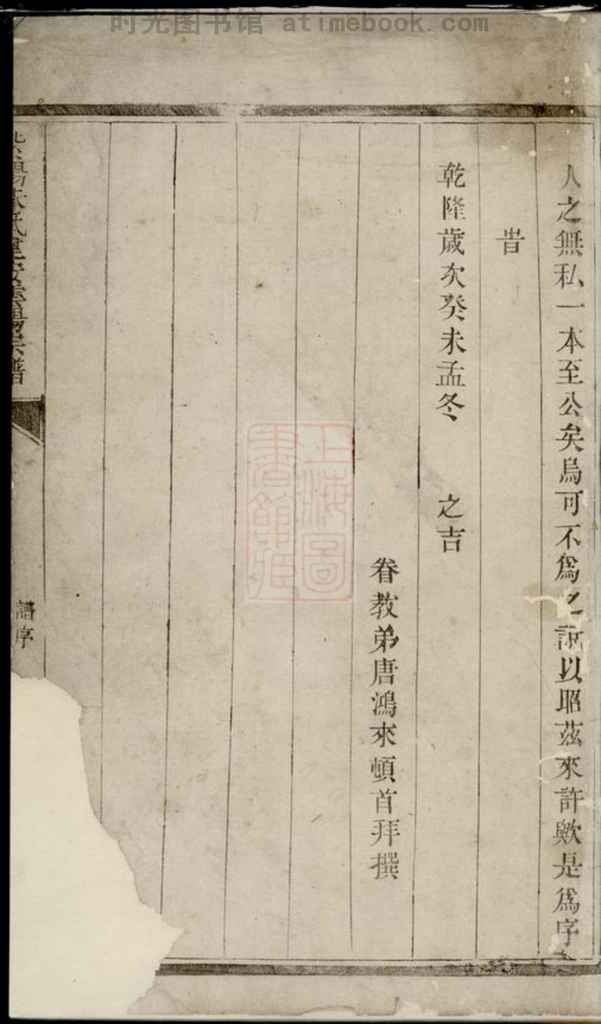 时光图书馆 atimebook.com
人之無私一本至公矣烏可不爲之說以昭茲來許歟是爲序
旹
乾隆歲次癸未孟冬 之吉
眷教弟唐鴻來頓首拜撰
上海圖書館藏
譜序